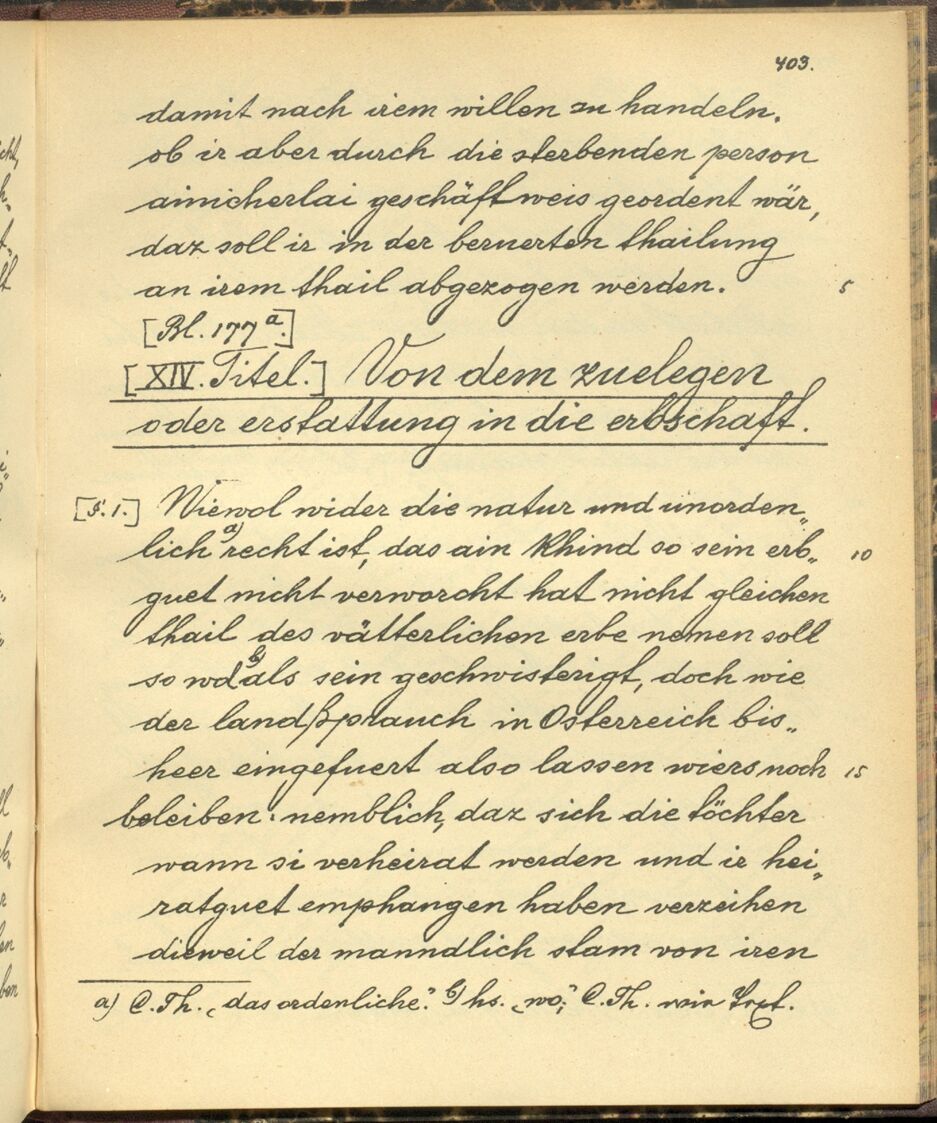 403.
damit nach irem willen zu handeln.
ob ir aber durch die sterbenden person
ainicherlai geschäftweis geordent wär,
daz soll ir in der beruerten thailung
an irem thail abgezogen werden. 5
[Bl. 177a.]
[XIV. Titel.] Von dem zuelegen
oder erstattung in die erbschaft.
[§. 1.] Wiewol wider die natur und unorden„
lich a) recht ist, das ain khind so sein erb„ 10
guet nicht verworcht hat nicht gleichen
thail des vätterlichen erbe nemen soll
so wol b) als sein geschwisterigt, doch wie
der landßprauch in Osterreich bis„
heer eingefuert also lassen wiers noch 15
beleiben: nemblich, daz sich die töchter
wann si verheirat werden und ir hei„
ratguet emphangen haben verzeihen
dieweil der manndlich stam von iren
a) C. Th. „das ordenliche.“ b) hs. „wo;“ C. Th. wie Text.